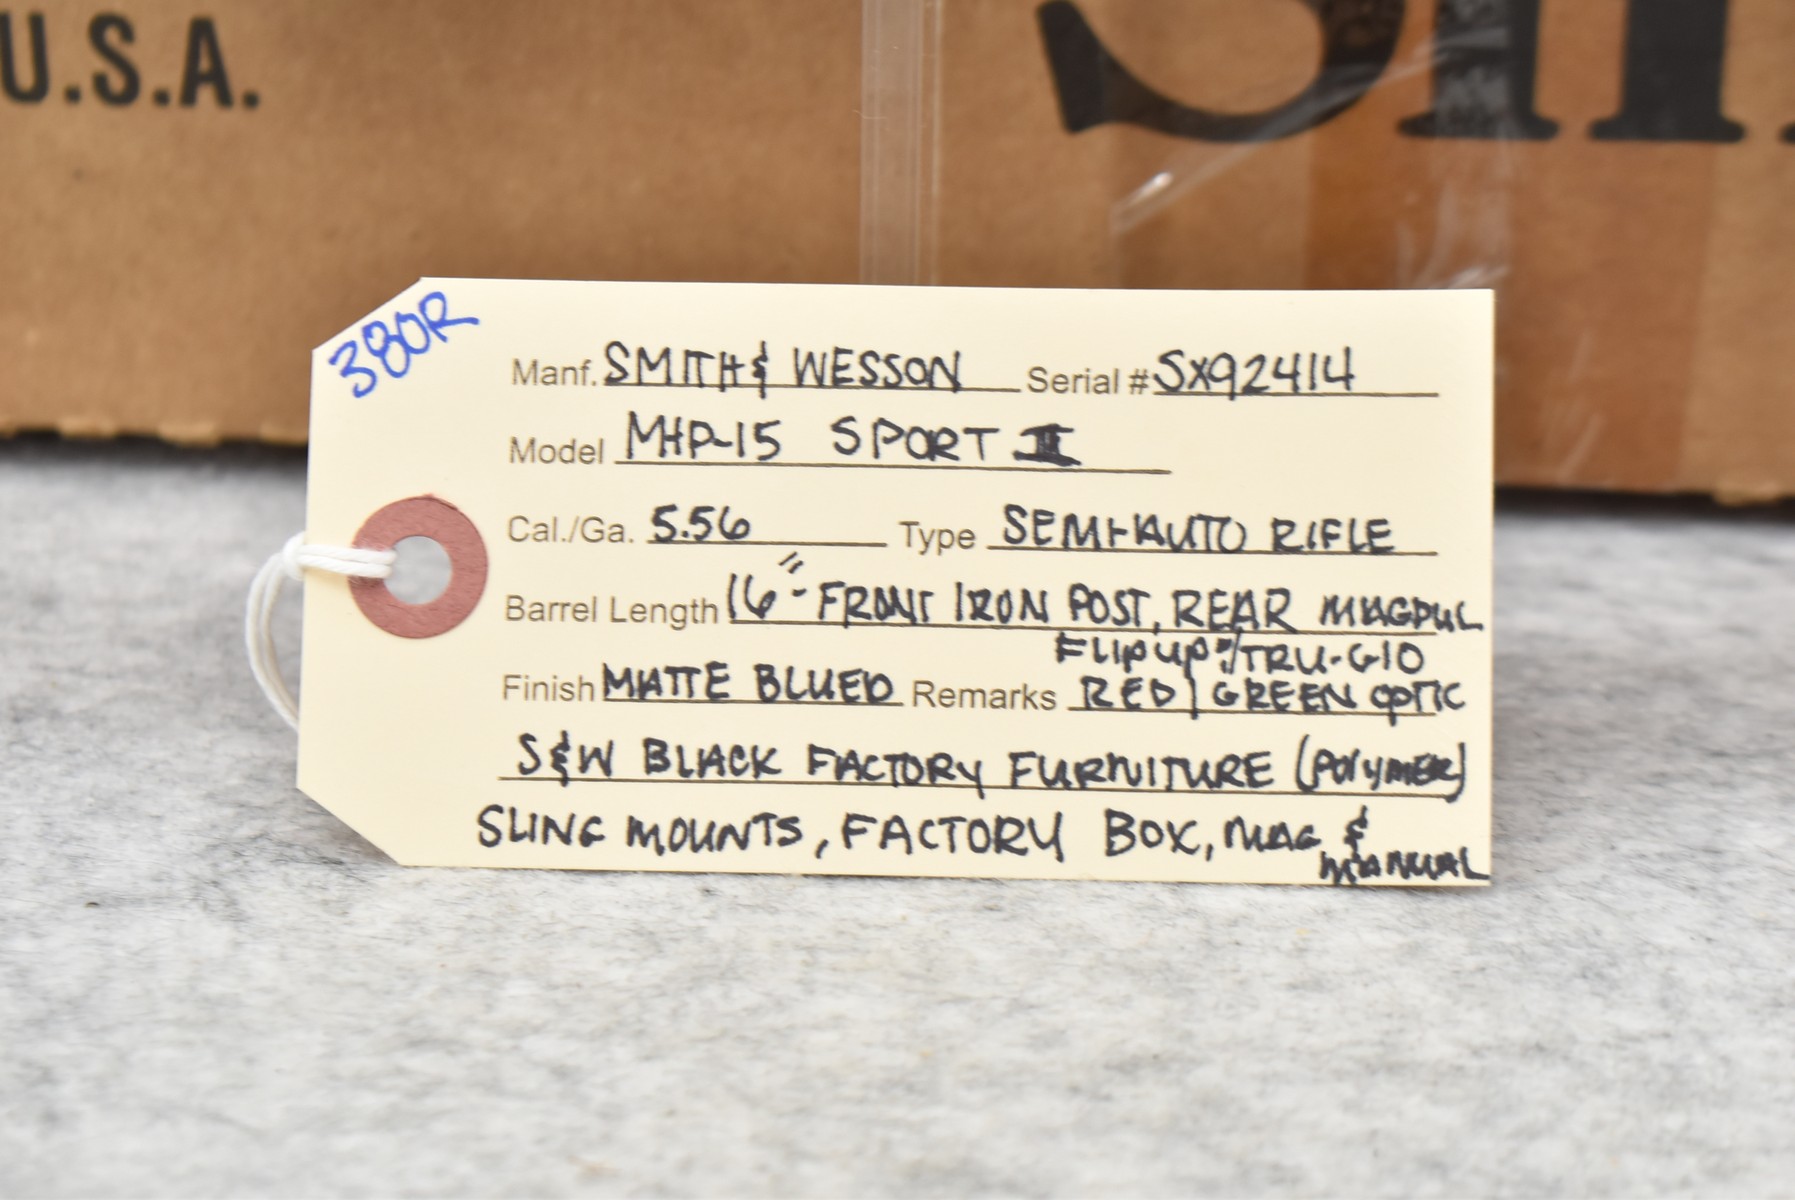 U.S.A. Sm
380R
Manf. SMITH & WESSON Serial # SX92414
Model M+P-15 SPORT II
Cal./Ga. 5.56 Type SEMI-AUTO RIFLE
Barrel Length 16" - FRONT IRON POST, REAR MAGPUL
FLIP UP W/TRU-GLO
Finish MATTE BLUED Remarks RED | GREEN OPTIC
S&W BLACK FACTORY FURNITURE (POLYMER)
SLING MOUNTS, FACTORY BOX, MAG &
MANUAL